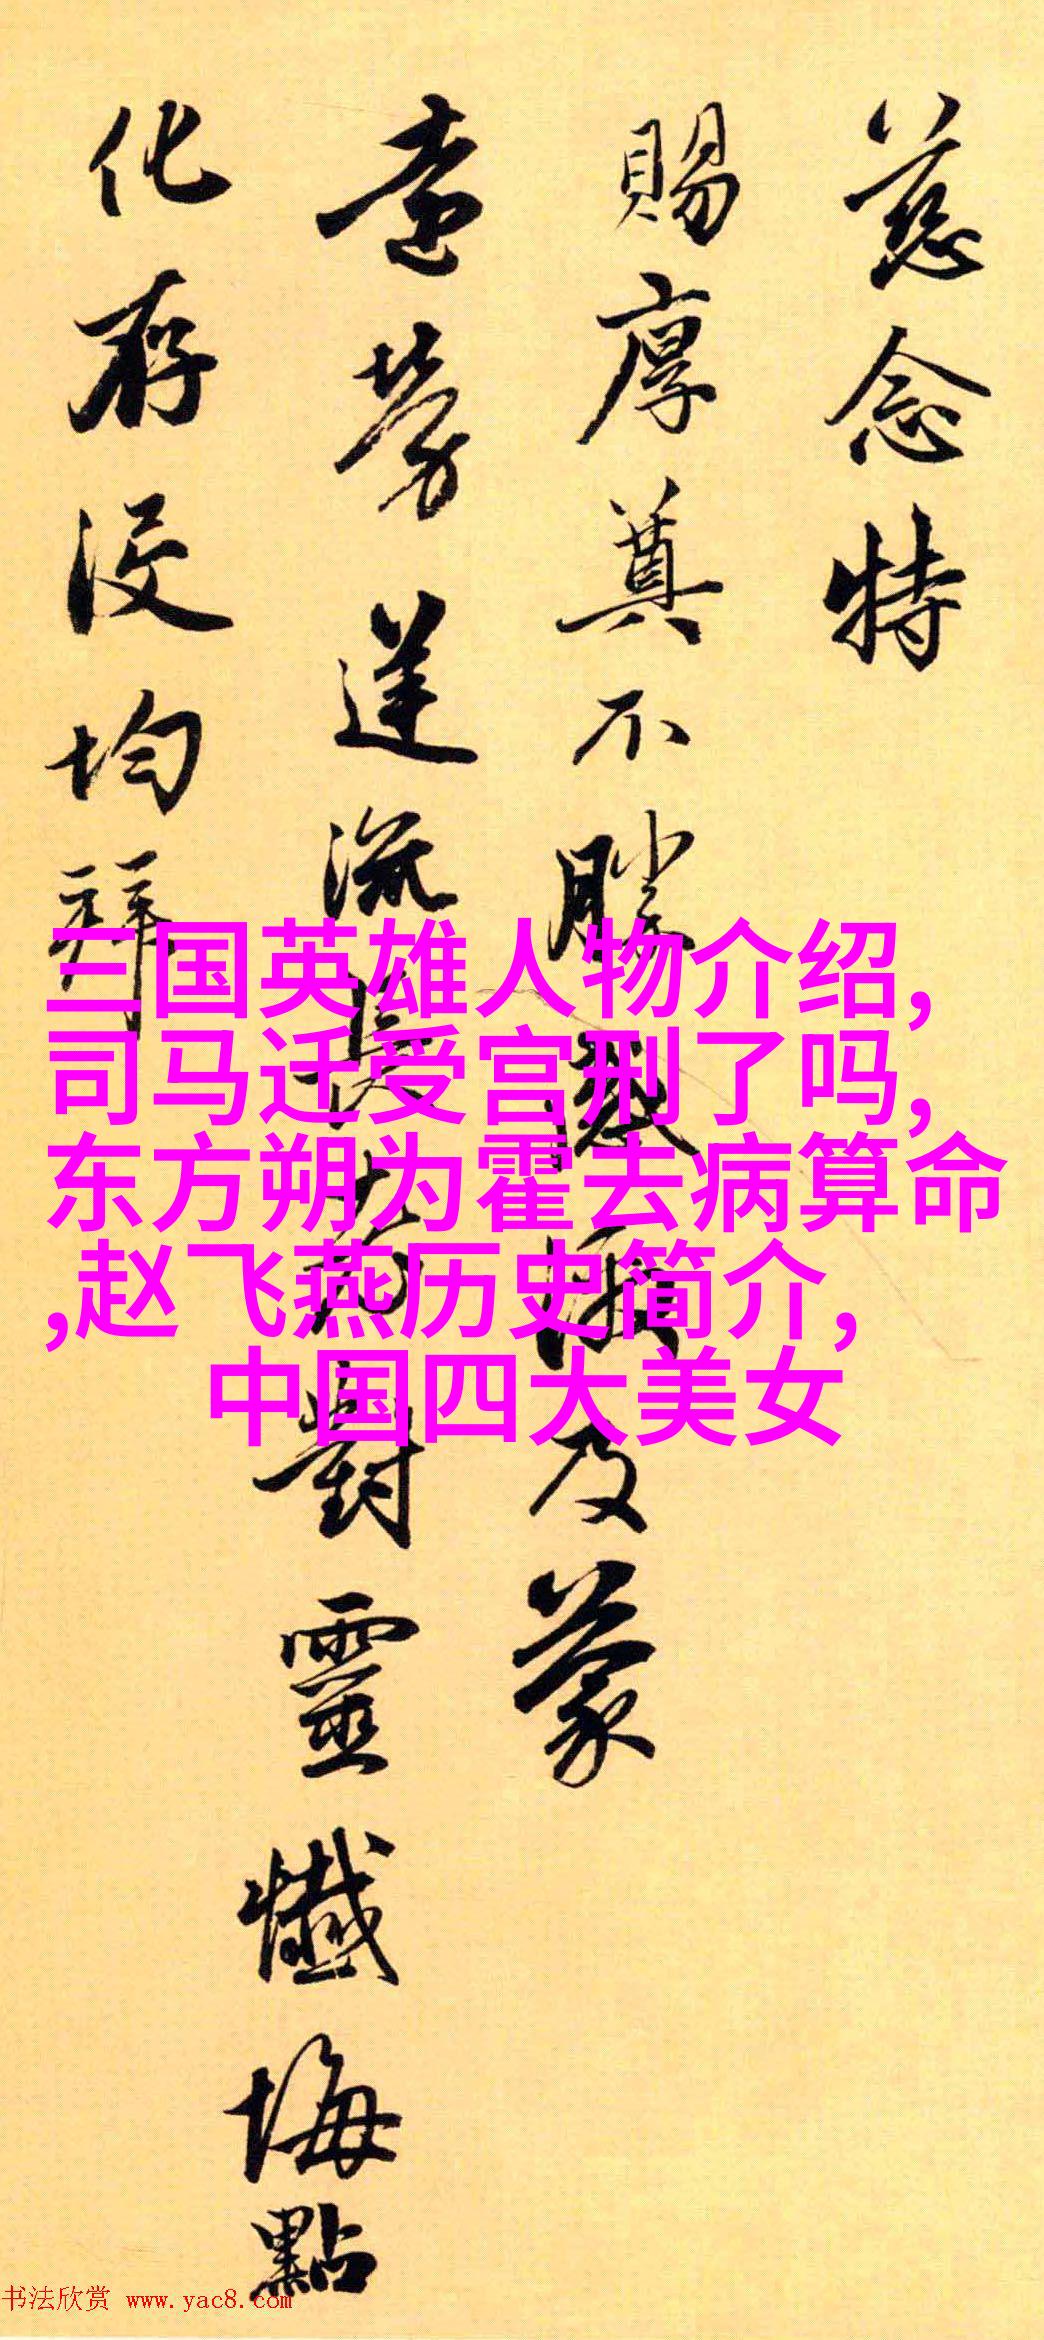 慈念特
賜厚奠不勝感激及蒙
遠勞送流對靈懺悔點
化存没均拜
三国英雄人物介绍,
司马迁受宫刑了吗,
东方朔为霍去病算命
,赵飞燕历史简介,
中国四大美女
书法欣赏 www.yac8.com